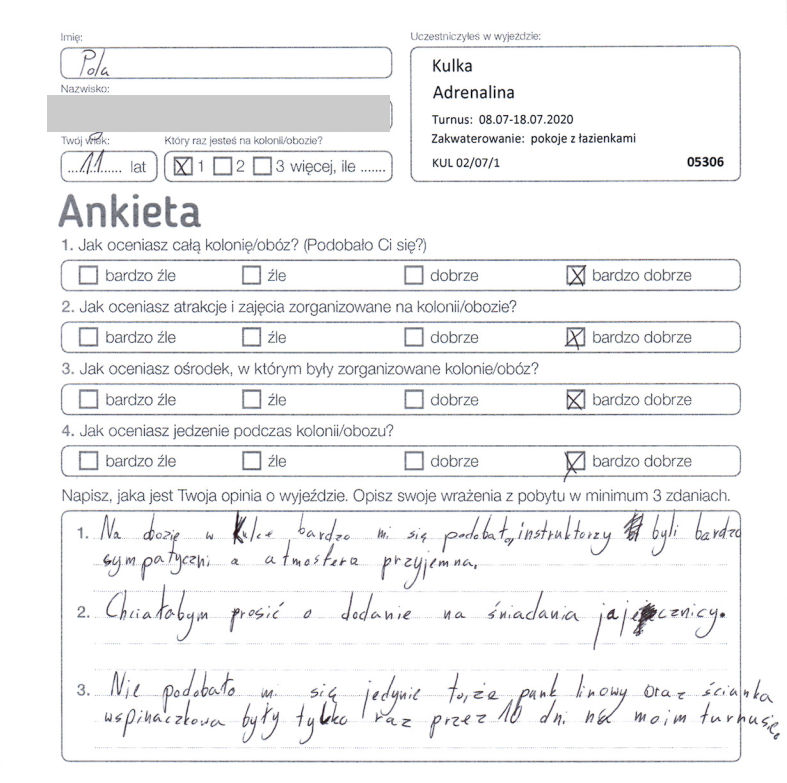 Imię:
Pola
Nazwisko:
Twój wiek:
11 lat
Który raz jesteś na kolonii/obozie?
1 2 3 więcej, ile .......
Uczestniczyłeś w wyjeździe:
Kulka
Adrenalina
Turnus: 08.07-18.07.2020
Zakwaterowanie: pokoje z łazienkami
KUL 02/07/1 05306
Ankieta
1. Jak oceniasz całą kolonię/obóz? (Podobało Ci się?)
bardzo źle źle dobrze bardzo dobrze
2. Jak oceniasz atrakcje i zajęcia zorganizowane na kolonii/obozie?
bardzo źle źle dobrze bardzo dobrze
3. Jak oceniasz ośrodek, w którym były zorganizowane kolonie/obóz?
bardzo źle źle dobrze bardzo dobrze
4. Jak oceniasz jedzenie podczas kolonii/obozu?
bardzo źle źle dobrze bardzo dobrze
Napisz, jaka jest Twoja opinia o wyjeździe. Opisz swoje wrażenia z pobytu w minimum 3 zdaniach.
1. Na obozie w Kulce bardzo mi się podobało, instruktorzy byli bardzo
sympatyczni a atmosfera przyjemna.
2. Chciałabym prosić o dodanie na śniadania jajecznicy.
3. Nie podobało mi się jedynie to, że park linowy oraz ścianka
wspinaczkowa były tylko raz przez 10 dni na moim turnusie.